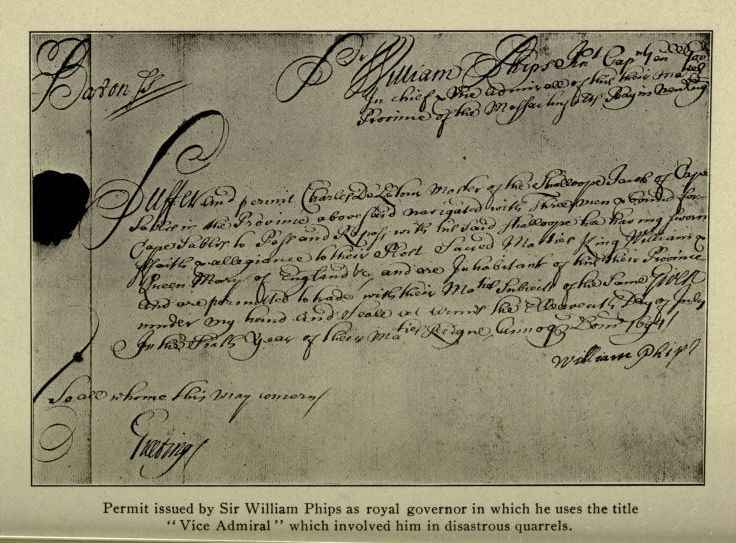 Baron ss
Sr William Phips Knt Capt Gen
in chief & Vice Admirall of this their Mats
Province of the Massachusetts Bay in New Eng
Suffer and permit Charles De Latour Master of the Shalloope Jacob of Cape
Sables in the Province abovesaid navigated with three men & bound for
Cape Sables to Pass and Repass with his said Shalloope he having sworn
ffaith & allegiance to their Most Sacred Maties King William &
Queen Mary of England &c and are Inhabitant of this their Province
And are permitted to trade with their Maties Subjects of the Same Given
under my hand and Seale at Armes the Eleaventh Day of July
In the Sixth Year of their Maties Reigne Annoq Domi 1694
William Phips
To all whome this may concern
Greeting
Permit issued by Sir William Phips as royal governor in which he uses the title
"Vice Admiral" which involved him in disastrous quarrels.